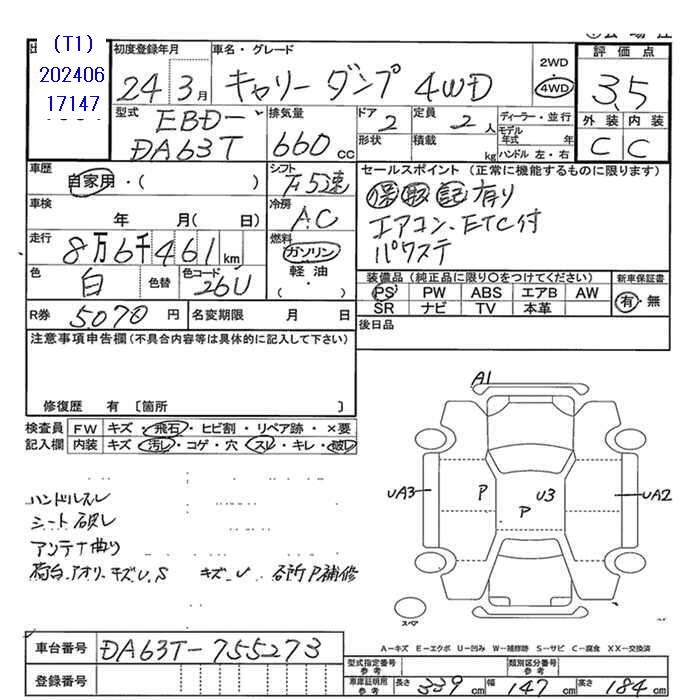 (T1)
202406
17147
初度登録年月
24 3月
車名・グレード
キャリーダンプ 4WD
2WD
4WD
評価点
3.5
外装 内装
C C
型式
EBD-
DA63T
排気量
660 cc
ドア 2
形状
定員 2 人
積載 kg
ディーラー・並行
モデル年式 年
ハンドル 左・右
車歴
自家用・( )
シフト
F5速
セールスポイント (正常に機能するものに限ります)
保 取 記 有り
エアコン、ETC付
パワステ
車検
年 月( 日)
冷房
AC
走行
8万6千461km
燃料
ガソリン
軽油
( )
色
白
色替
色コード
26U
装備品(純正品に限り○をつけてください)
新車保証書
PS PW ABS エアB AW
SR ナビ TV 本革
有・無
R券 5070 円
名変期限 月 日
後日品
注意事項申告欄(不具合内容等は具体的に記入して下さい)
修復歴 有〔箇所 〕
検査員記入欄
FW キズ・飛石・ヒビ割・リペア跡・×要
内装 キズ・汚レ・コゲ・穴・スレ・キレ・破レ
ハンドルスレ
シート破レ
アンテナ曲り
荷台、アオリ、キズU、S キズ、U 各所P補修
A1
UA3
P
U3
P
UA2
スペア
A-キズ E-エクボ U-凹み W-補修跡 S-サビ C-腐食 XX-交換済
車台番号 DA63T-755273
登録番号
型式指定番号 参考
類別区分番号 参考
車庫証明用 参考 長さ 339cm 幅 147cm 高さ 184cm